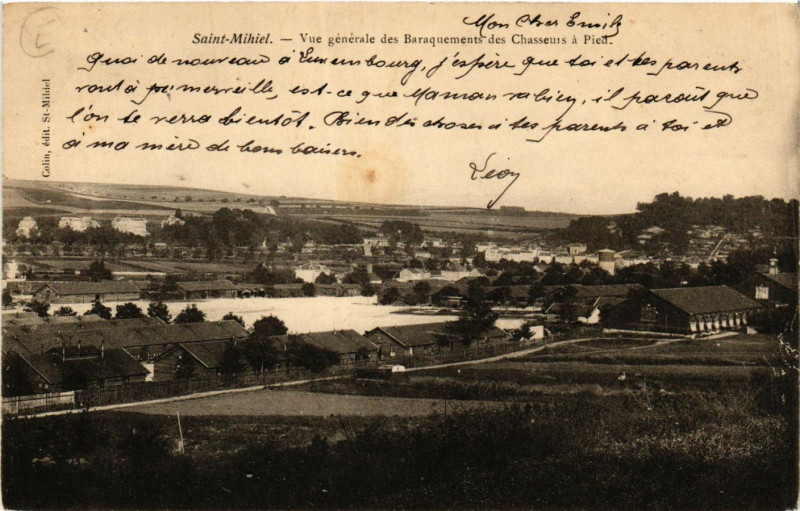 Mon Cher Emile
Saint-Mihiel. — Vue générale des Baraquements des Chasseurs à Pied.
Quoi de nouveau à Luxembourg, j'espère que toi et tes parents
vont à merveille, est-ce que Maman va bien, il paraît que
l'on te verra bientôt. Bien des choses à tes parents à toi et
à ma mère de bons baisers.
Léon
Colin, édit. St-Mihiel